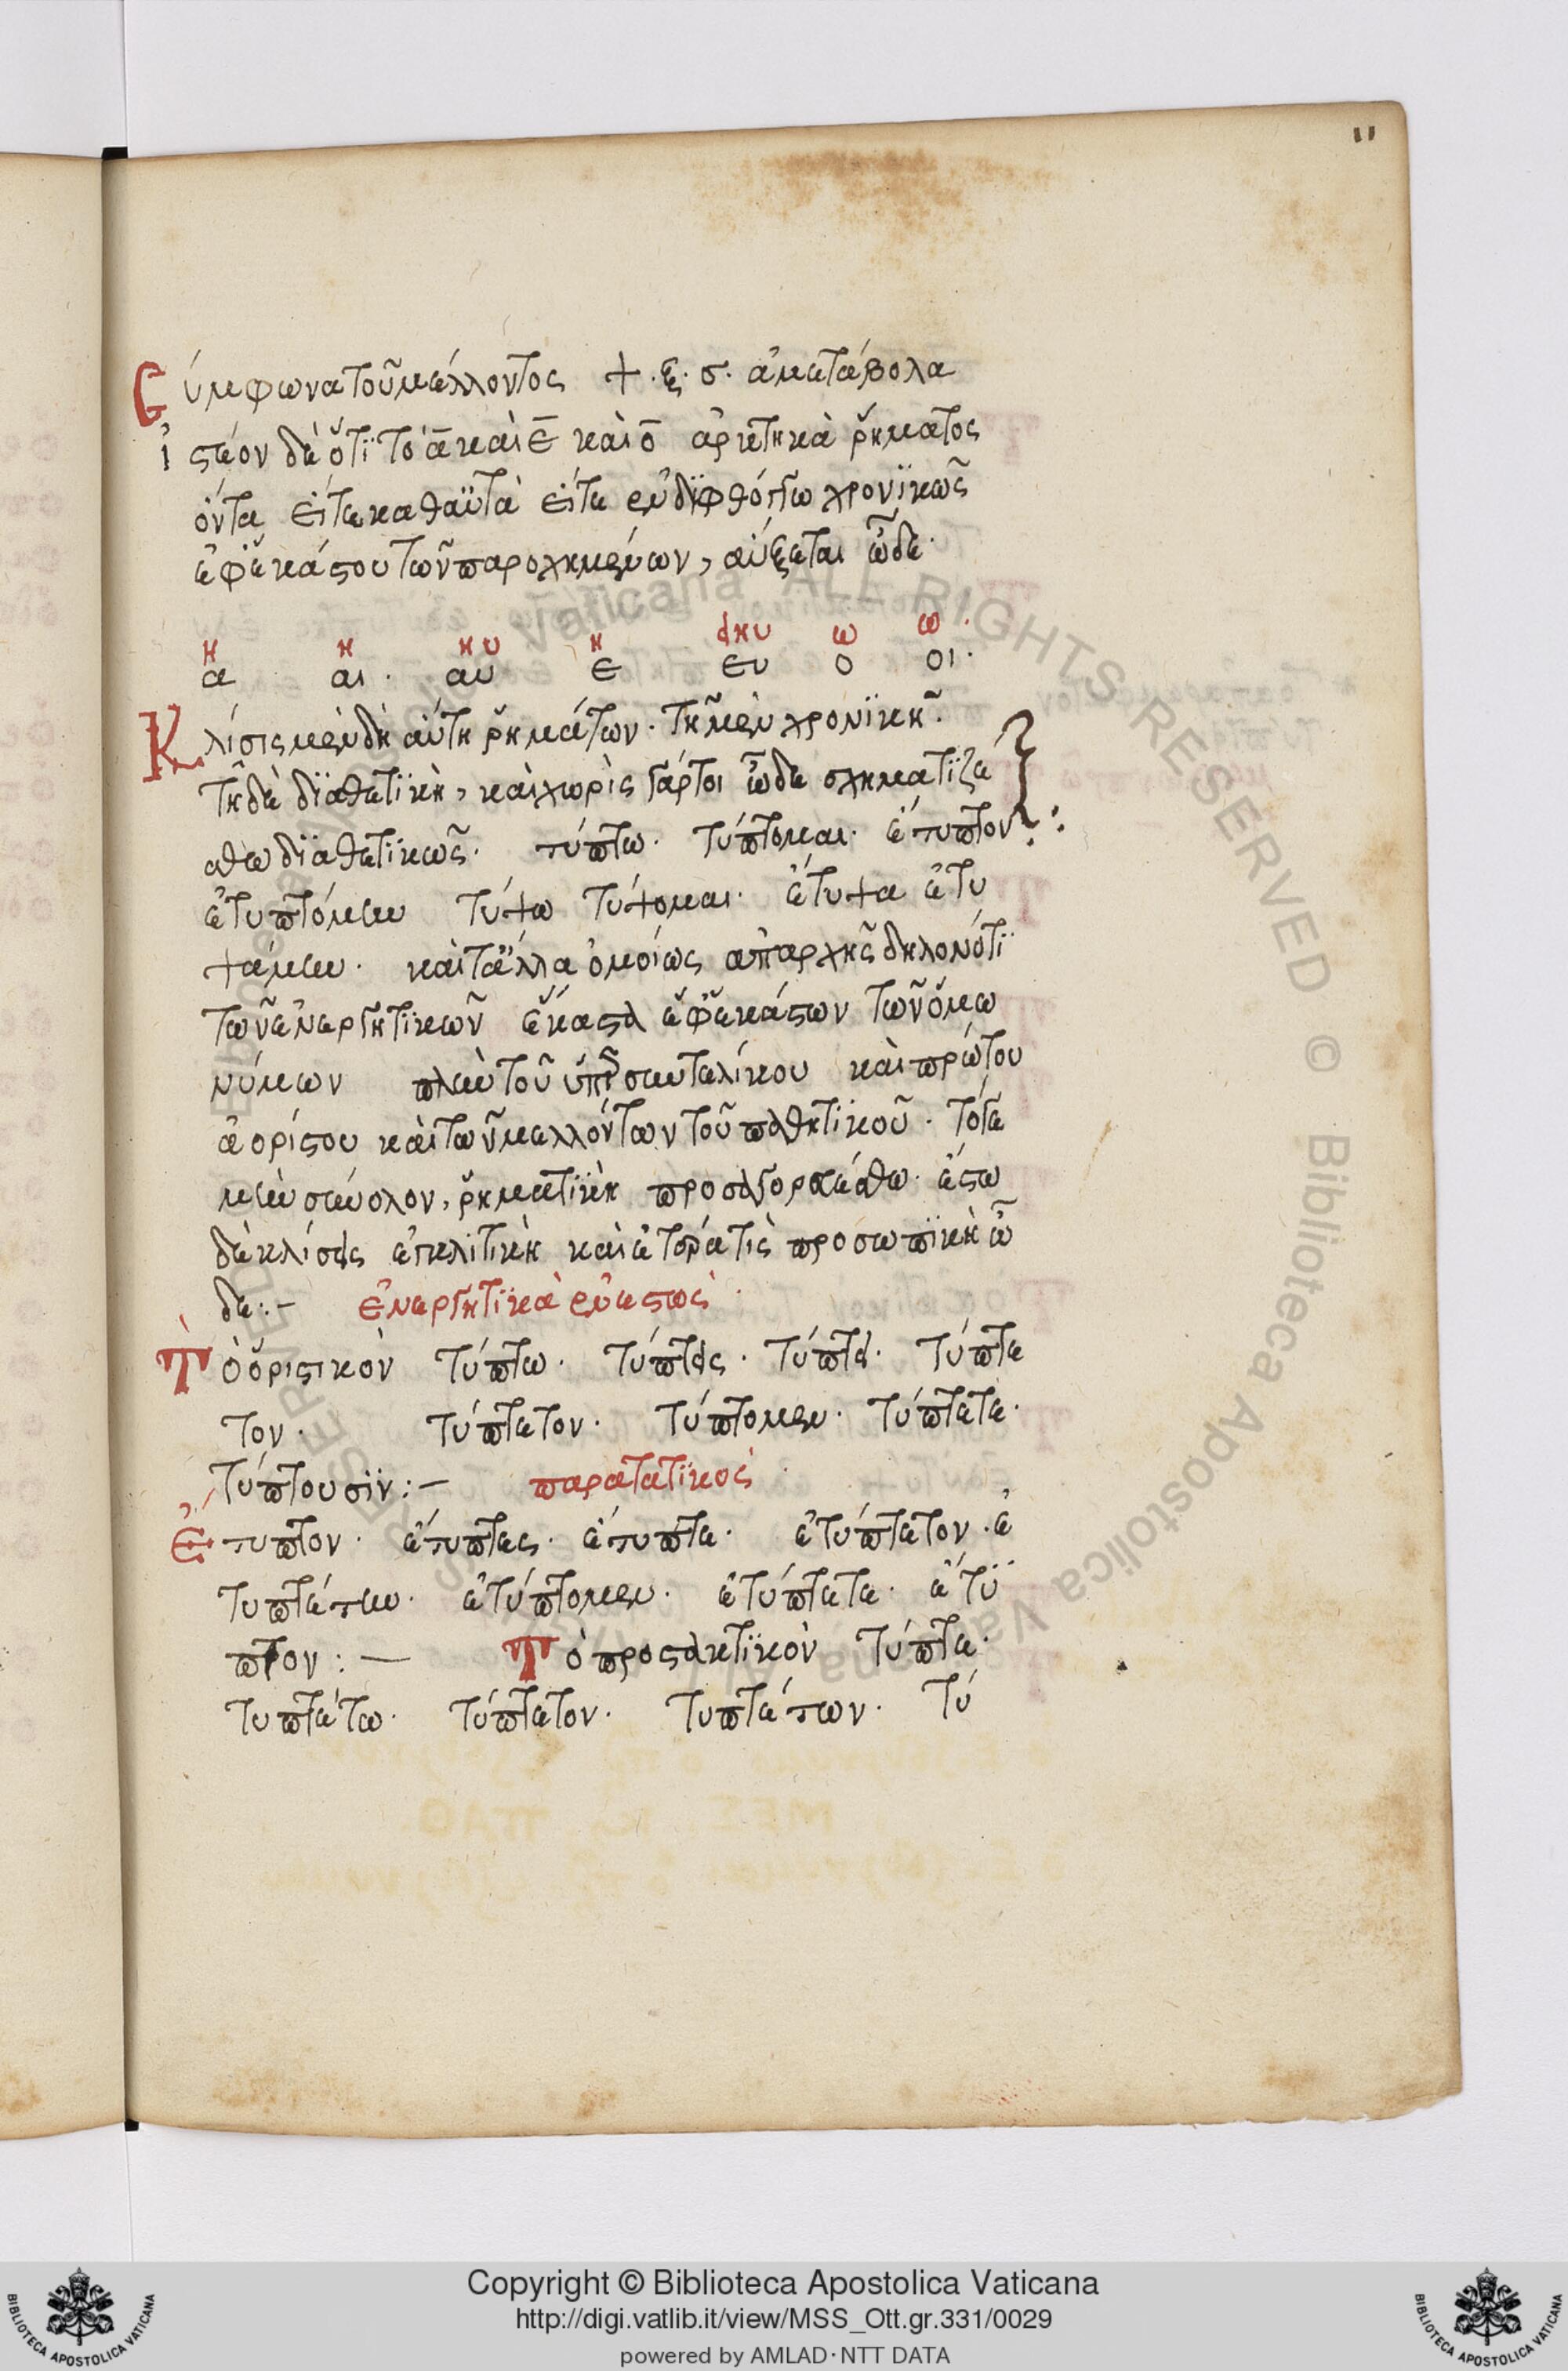 11
Σύμφωνα τοῦ μέλλοντος ψ. ξ. σ. ἀμετάβολα
ἰστέον δὲ ὅτϊ τὸ ᾱ καὶ ε̄ καὶ ο̄ ἀρκτηκὰ ῥήματος
ὄντα εἴτε καθαὑτὰ εἴτε ἐν δϊφθόγγω χρονϊκῶς
ἐφἑκάστου τῶν παρωχημένων, αὔξεται ὧδε·
η η ηυ η ειηυ ω ω·
α αι· αυ ε ευ ο οι·
Κλίσις μὲν δὴ αὕτη ῥημάτων· τῆ μὲν χρονϊκῆ·
τῆ δὲ δϊαθετϊκὴ, καὶ χωρὶς γάρτοι ὧδε σχηματϊζέ
σθω δϊαθετϊκῶς· τύπτω· τύπτομαι· ἔτυπτον:
ἐτυπτόμην τύψω τύψομαι· ἔτυψα ἐτυ
ψάμην· καὶ τἄλλα ὁμοίως ἀπαρχῆς δηλονότϊ
τῶν ἐνεργητϊκῶν ἕκαστα ἐφἑκάστων τῶν ὁμω
νύμων πλὴν τοῦ ὑπερσυντελίκου καὶ πρώτου
ἀορίστου καὶ τῶν μελλόντων τοῦ παθητϊκοῦ· τότε
μὴν σύνολον, ῥηματϊκὴ προσαγορευέσθω· ἔστω
δὲ κλίσεις ἐγκλϊτικὴ καὶ ἑτέρα τὶς προσωπϊκὴ ὧ
δε:– ἐνεργητϊκὰ ἐνεστὼς·
Τὸ ὁριστικὸν τύπτω· τύπτεις· τύπτει· τύπτε
τον· τύπτετον· τύπτομεν· τύπτετε·
τύπτουσϊν:– παρατατϊκος·
Ἔτυπτον· ἔτυπτες· ἔτυπτε· ἐτύπτετον· ἐ
τυπτέτην· ἐτύπτομεν· ἐτύπτετε· ἔτϋ
πτον:— Τὸ προστακτϊκὸν τύπτε·
τυπτέτω· τύπτετον· τυπτέτων· τύ
Copyright © Biblioteca Apostolica Vaticana
http://digi.vatlib.it/view/MSS_Ott.gr.331/0029
powered by AMLAD·NTT DATA